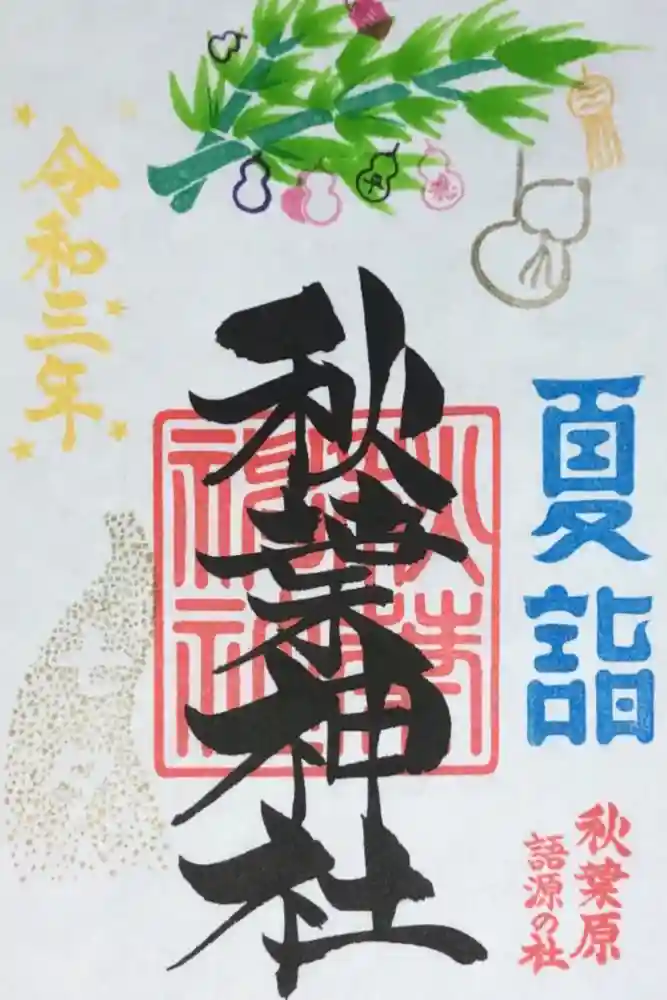 夏詣
秋葉原
語源の社
秋葉神社
令和三年